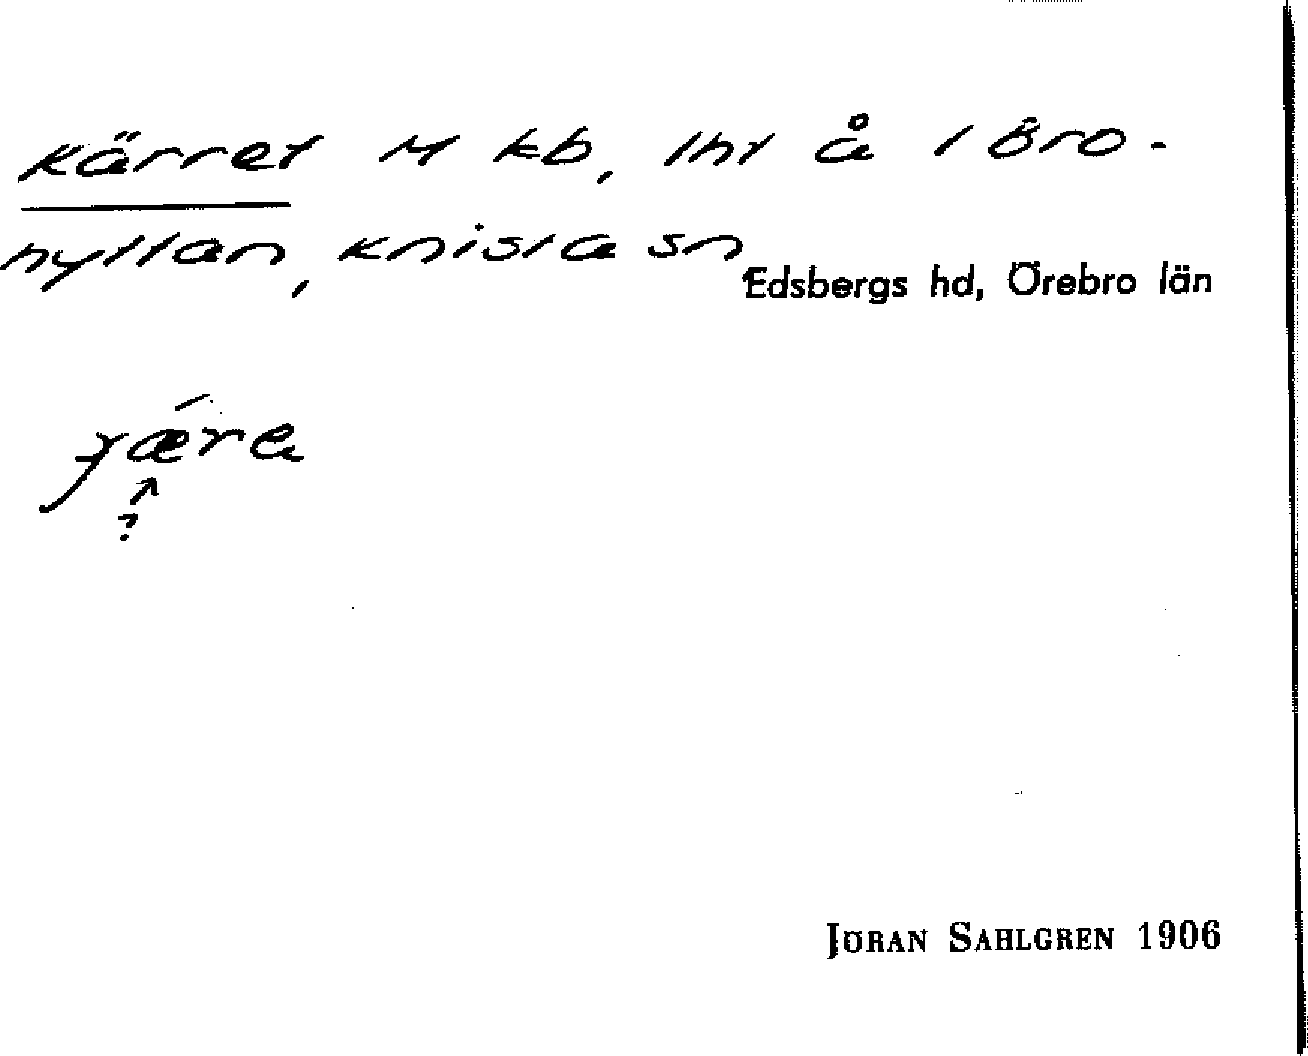 Kärret M kb, lht å i Bro-
hyttan, Knista sn
Edsbergs hd, Örebro län
?
JÖRAN SAHLGREN 1906